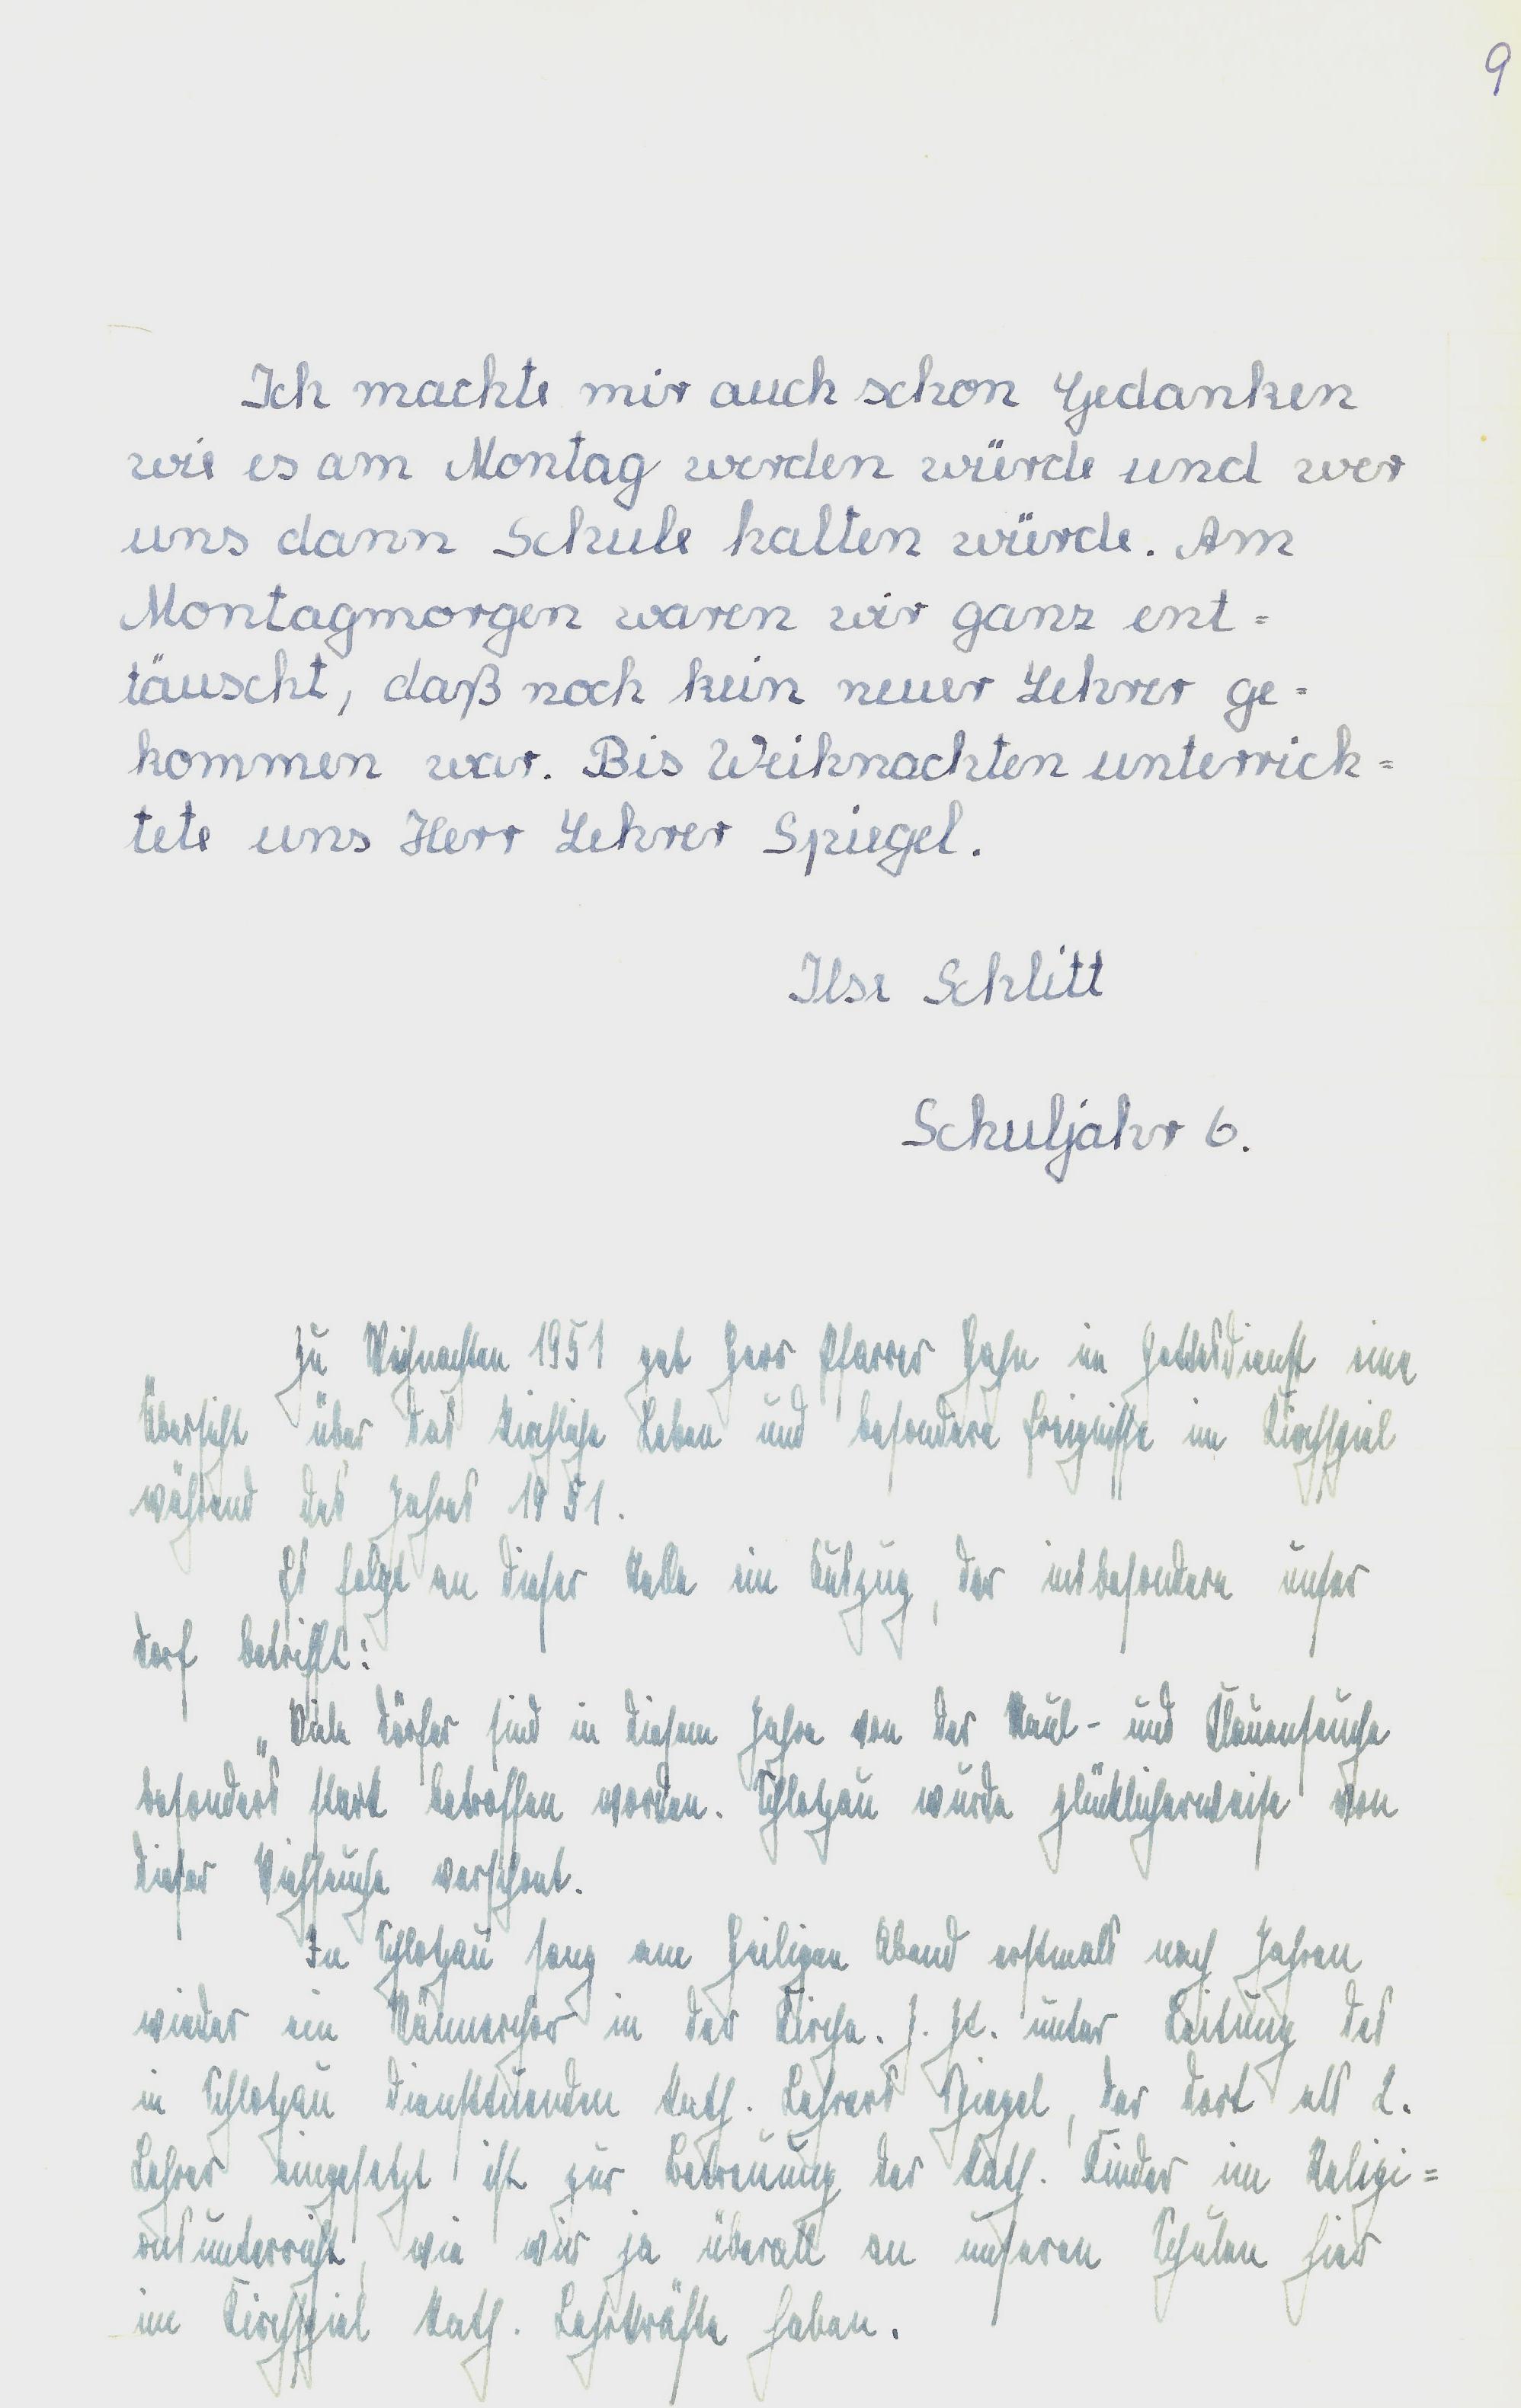 9
Ich machte mir auch schon Gedanken
wie es am Montag werden würde und wer
uns dann Schule halten würde. Am
Montagmorgen waren wir ganz ent=
täuscht, daß noch kein neuer Lehrer ge=
kommen war. Bis Weihnachten unterrich=
tete uns Herr Lehrer Spiegel.
Ilse Schlitt
Schuljahr 6.
Zu Weihnachten 1951 gab Herr Pfarrer Hahn im Gottesdienst eine
Übersicht über das kirchliche Leben und besondere Ereignisse im Kirchspiel
während des Jahres 1951.
Es folgt an dieser Stelle ein Auszug, der insbesondere unser
Dorf betrifft:
„Viele Dörfer sind in diesem Jahre von der Maul- und Klauenseuche
besonders stark betroffen worden. Schlotzau wurde glücklicherweise von
dieser Viehseuche verschont.
In Schlotzau sang am Heiligen Abend erstmals nach Jahren
wieder ein Männerchor in der Kirche. z. Zt. unter Leitung des
in Schlotzau diensttuenden kath. Lehrers Spiegel, der dort als 2.
Lehrer eingesetzt ist zur Betreuung der kath. Kinder im Religi=
onsunterricht, wie wir ja überall an unseren Schulen hier
im Kirchspiel kath. Lehrkräfte haben.